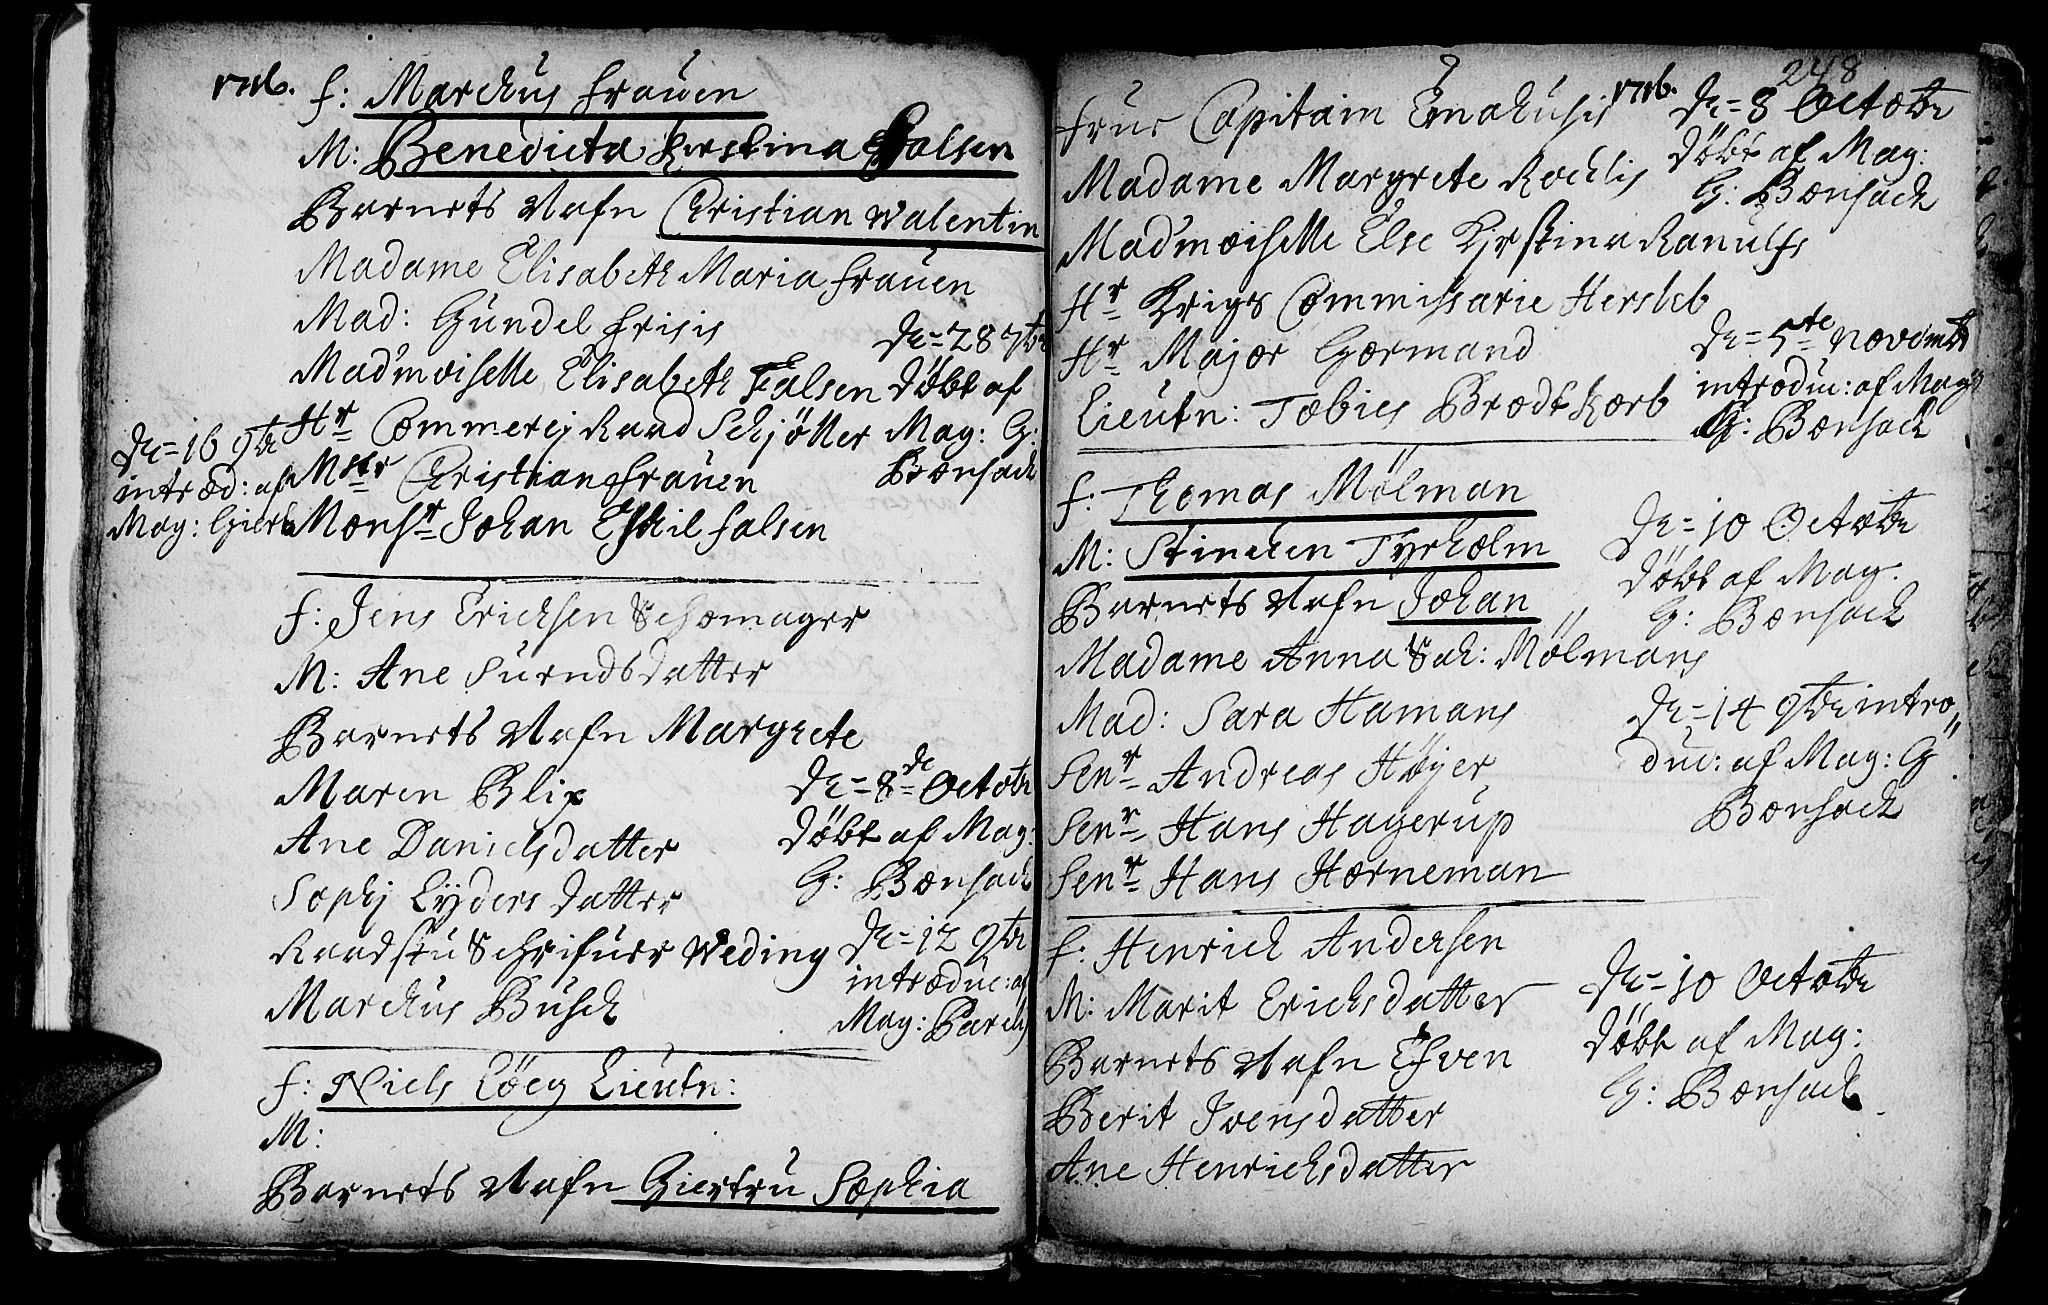 1716.
F: Marchus Frauen
M: Benedicta Kirstina Falsen
Barnets Nafn Christian Walentin
Madame Elisabeth Maria Frauen
Mad: Gundel Frisis
Mad'moiselle Elisabeth Falsen
Hr Commercj Raad Schjøller
Msr Christian Frauen
Monsr Johan Eschil Falsen
De = 28 7br
Døbt af
Mag: G:
Bonsach
De = 16 9br
introd: af
Mag:
F: Jens Erichsen Schomager
M: Ane Suendsdatter
Barnets Nafn Margrete
Maren Blix
Ane Danielsdatter
Sophj Lyders datter
Raadstu Schrifuer Weding
Marchus Busch
De = 8de Octobr
Døbt af Mag:
G: Bonsach
De = 12 9br
introduc: af
Mag: Parelj
F: Niels Löeg Lieutn:
M:
Barnets Nafn Giertru Sophia
248
1716.
Frue Capitain
Madame Margrete Rochlis
Mad'moiselle Else Kjrstina Ranulfs
Hr Krigs Commissarie Hersleb
Hr Major Gormand
Lieutn: Tobies Brodtkorb
De = 8 Octobr
Døbt af Mag:
G: Bonsach
De = 5te Novembr
introduc: af Mag:
G: Bonsach
F: Thomas Mølman
M: Stinchen Tyrholm
Barnets Nafn Johan
Madame Anna Sal: Mölmans
Mad: Sara Hamans
Senr Andreas Høyer
Senr Hans Hagerup
Senr Hans Horneman
De = 10 Octobr
Døbt af Mag.
G: Bonsach
De = 14 9br intro
duc: af Mag: G
Bonsach
F: Henrich Andersen
M: Marit Erichsdatter
Barnets Nafn Esven
Berit Ivensdatter
Ane Henrichsdatter
De = 10 Octobr
Døbt af Mag:
G: Bonsach